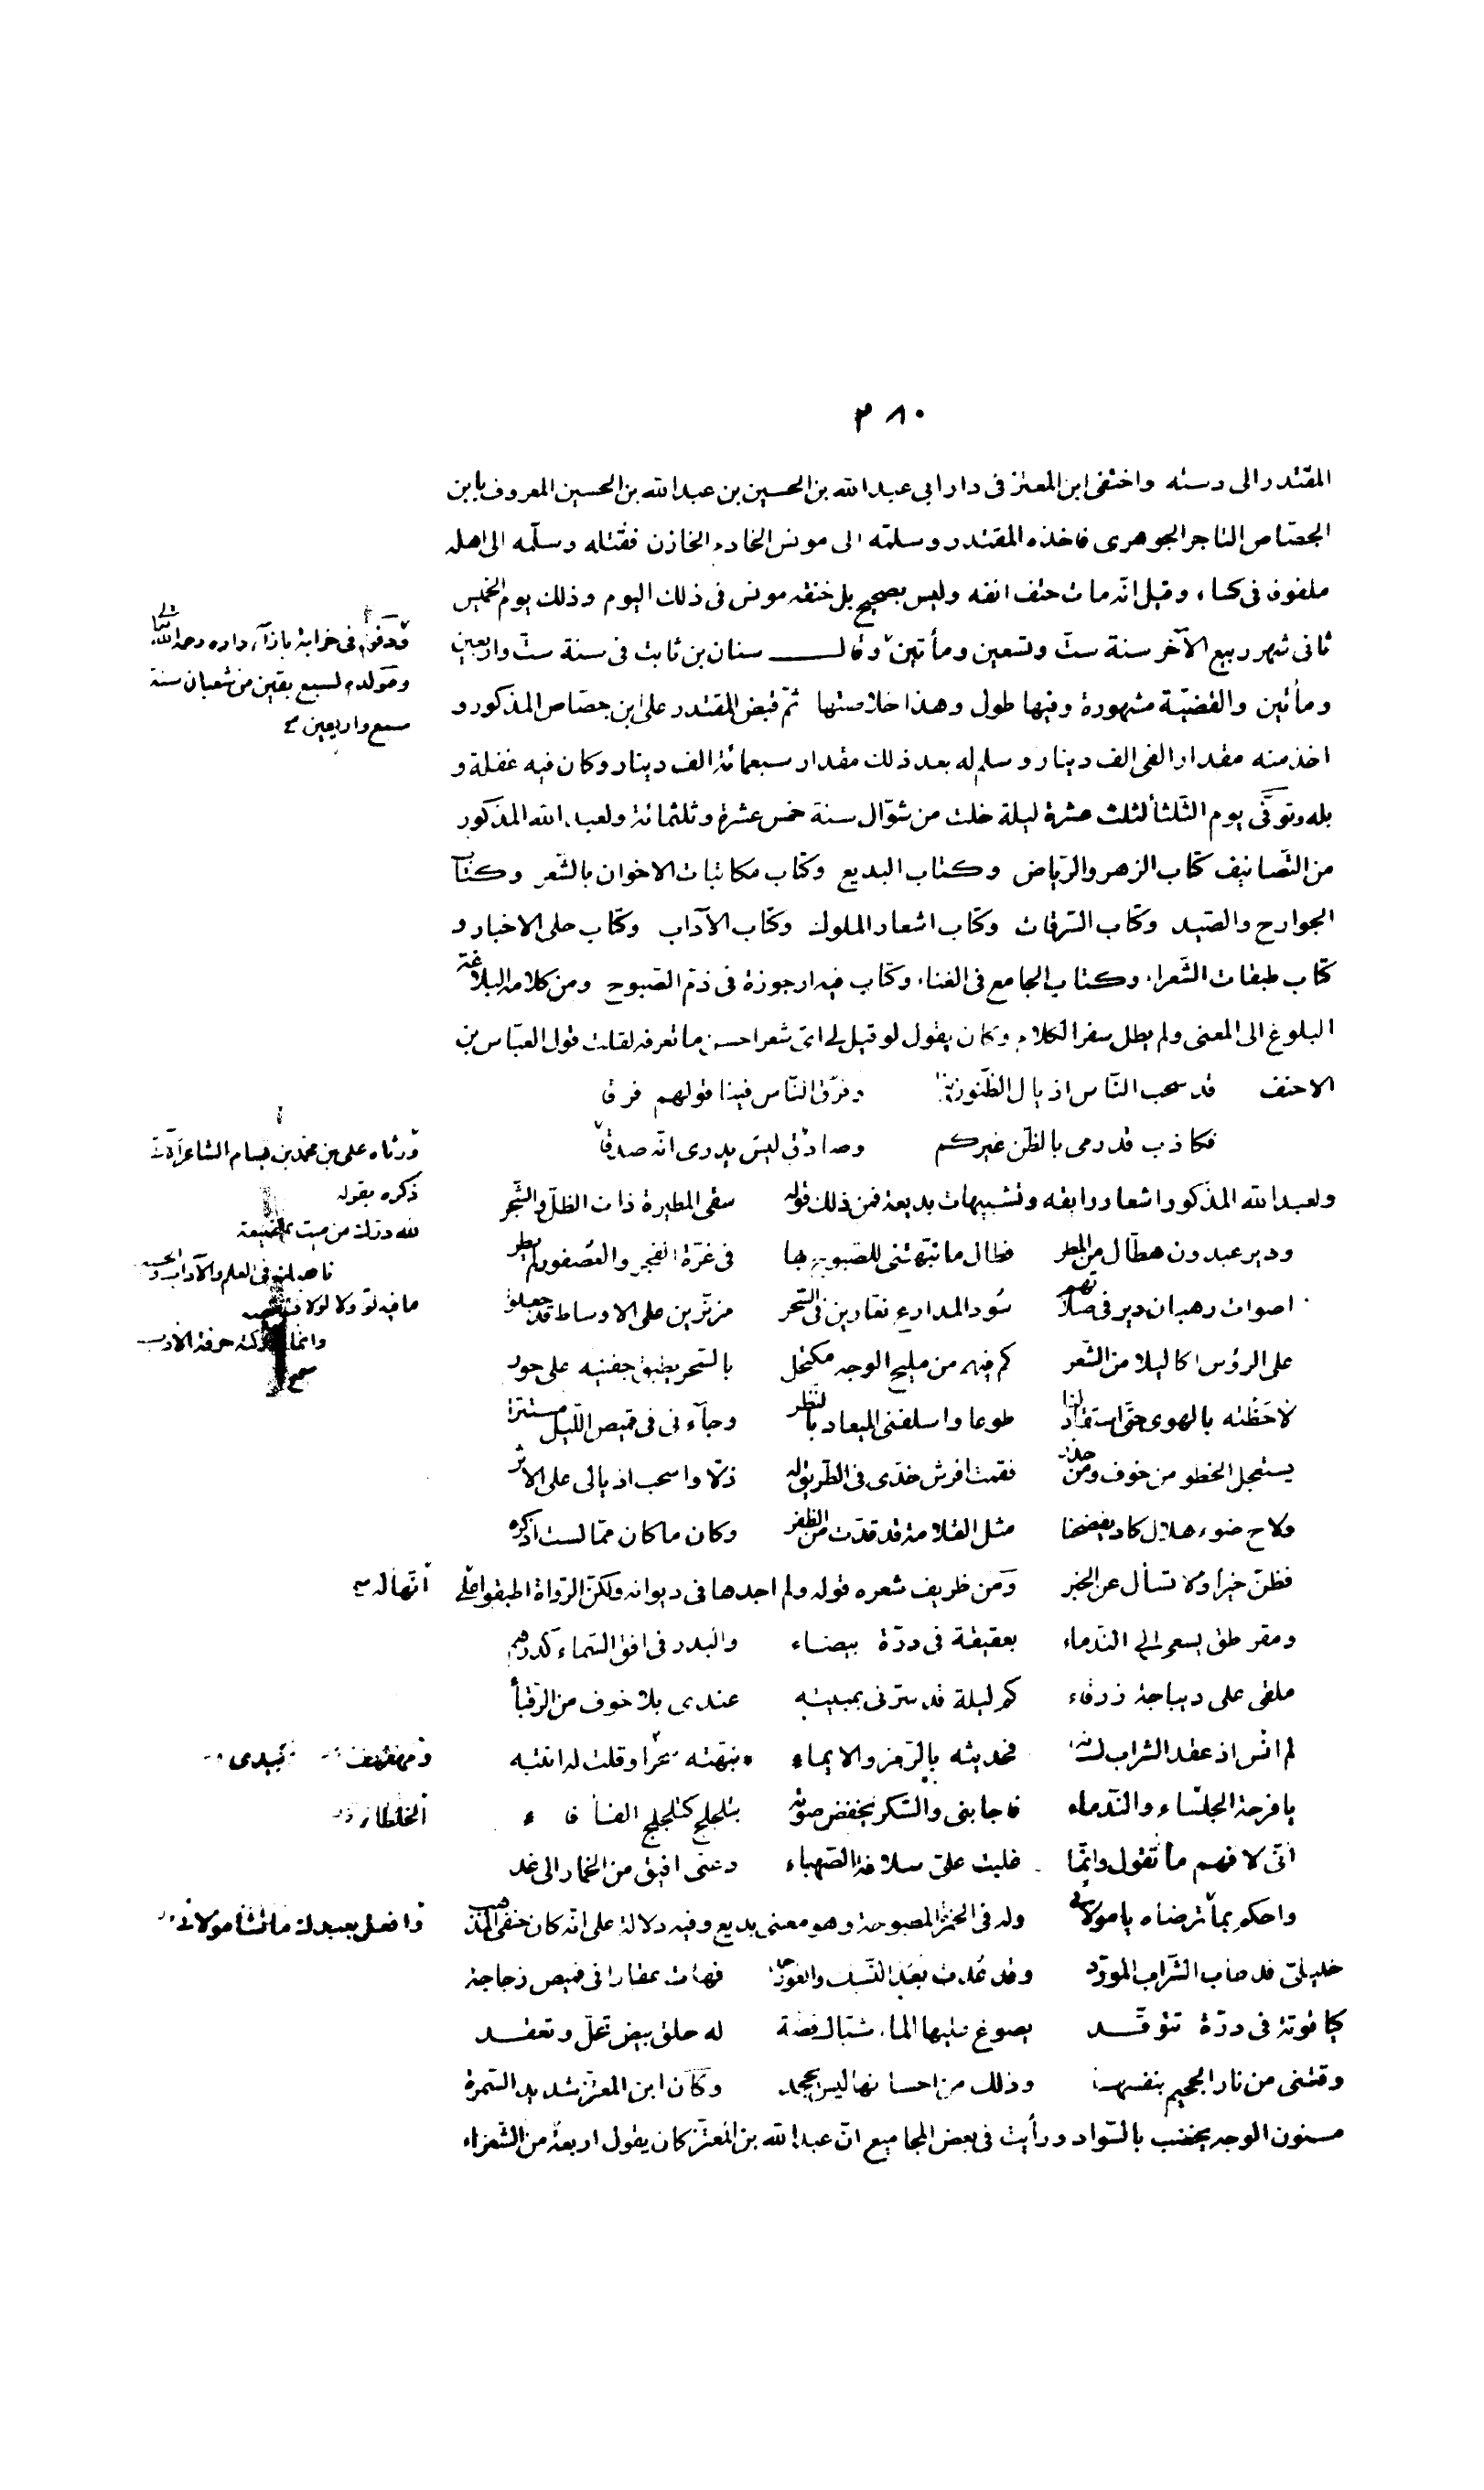 ٢٨٠
المقتدر الى دسته واختفى ابن المعتز فى دار ابى عبد الله بن الحسين بن عبد الله بن الحسين المعروف بابن
الجصّاص التاجر الجوهرى فاخذه المقتدر وسلمه الى مونس الخادم الخازن فقتله وسلّمه الى اهله
ملفوفا فى كساء وقيل انّه مات حتف انفه وليس بصحيح بل خنقه مونس فى ذلك اليوم وذلك يوم الخميس
ثانى شهر ربيع الآخر سنة ستّ وتسعين ومأتين وقال سنان بن ثابت فى سنة ستّ واربعين
ومأتين والقضيّة مشهورة وفيها طول وهذا خلاصتها ثمّ قبض المقتدر على ابن جصّاص المذكور و
اخذ منه مقدار الفى الف دينار وسلم له بعد ذلك مقدار سبعمائة الف دينار وكان فيه غفلة و
بله وتوفّى يوم الثّلثأ لثلث عشرة ليلة خلت من شوّال سنة خمس عشرة وثلثمائة ولعبد الله المذكور
من التّصانيف كتاب الزهر والرّياض وكتاب البديع وكتاب مكاتبات الاخوان بالشّعر وكتاب
الجوارح والصّيد وكتاب السّرقات وكتاب اشعار الملوك وكتاب الآداب وكتاب حلى الاخبار و
كتاب طبقات الشّعراء وكتاب الجامع فى الغناء وكتاب فيه ارجوزة فى ذمّ الصّبوح ومن كلامه البلاغة
البلوغ الى المعنى ولم يطل سفر الكلام وكان يقول لو قيل لى اىّ شعر احسن ما تعرفه لقلت قول العبّاس بن
الاحنف قد سحب النّاس اذيال الظّنون بنا وفرّق النّاس فينا قولهم فرقا
فكاذب قد رمى بالظّن غيركم وصادق ليس يدرى انّه صدقا
ولعبد الله المذكور اشعار رايقه وتشبيهات بديعة فمن ذلك قوله سقى المطيرة ذات الظلّ والشّجر
ودير عبدون هطّال من المطر فطال ما نبّهتنى للصّبوح بها فى غرّة الفجر والعصفور لم يطر
اصوات رهبان دير فى صلاتهم سُود المدارع نعّارين فى السّحر مزنّرين على الاوساط قد جعلوا
على الرؤس اكاليلا من الشّعر كم فيهم من مليح الوجه مكتحل بالسّحر يطبق جفنيه على حور
لاحَظْته بالهوى حتّى استقاد لنا طوعا واسلفنى الميعاد بالنّظر وجآءنى فى قميص اللّيل مستترا
يستعجل الخطو من خوف ومن حذر فقمت افرش خدّى فى الطّريق له ذلّا واسحب اذيالى على الاثر
ولاح ضوء هلال كاد يفضحنا مثل القلامة قد قدّت من الظّفر وكان ما كان ممّا لست اذكره
فظنّ خيرا ولا تسأل عن الخبر ومن ظريف شعره قوله ولم اجدها فى ديوانه ولكنّ الرّواة اطبقوا على انّها له
ومقرطق يسعى الى النّدماء بعقيقة فى درّة بيضاء والبدر فى افق السّماء كدرهم
ملقى على ديباجة زرقاء كم ليلة قد سرّنى بمبيته عندى بلا خوف من الرّقبأ
لم انس اذ عقد الشراب لسانه فحديثه بالرّمز والايماء نبّهته سحرا وقلت له انتبه
يا فرحة الجلسّاء والنّدماء فاجابنى والسّكر يخفض صوته بتلجلج كتلجلج الفأفاء
انّى لافهم ما تقول وانّما غلبت علىّ سلافة الصّهباء دعنى افيق من الخمار الى غد
واحكم بما ترضاه يا مولائى وله فى الخمر المصبوحة وهو معنى بديع وفيه دلالة على انّه كان حنفى المذهب
خليلىّ قد طاب الشّراب المورّد وقد عُدت بعد النّسك والعود احمد فهات عقارا فى قميص زجاجة
كياقوتة فى درّة تتوقّد يصوغ عليها الماء شبّاك فضّة له حلق بيض تحلّ وتعقد
وقتنى من نار الجحيم بنفسها وذلك من احسانها ليس يجحد وكان ابن المعتزّ شديد السّمرة
مسنون الوجه يخضب بالسّواد ورأيت فى بعض المجاميع انّ عبد الله بن المعتزّ كان يقول اربعة من الشّعراء
ودفن فى خرابة بازآء داره رحمه الله تعالى
ومولده لسبع بقين من شعبان سنة
سبع واربعين
ورثاه على بن محمد بن بسام الشاعر الآتى
ذكره بقوله
لله درك من ميت بمضيعة
ناهيك فى العلم والآداب والحسب
ما فيه لو ولا لولا فتنقصه
وانما ادركته حرفة الادب
صح
ومهفهف
بيدى
الخلطاء
وافعل بعبدك ما تشأ مولائى